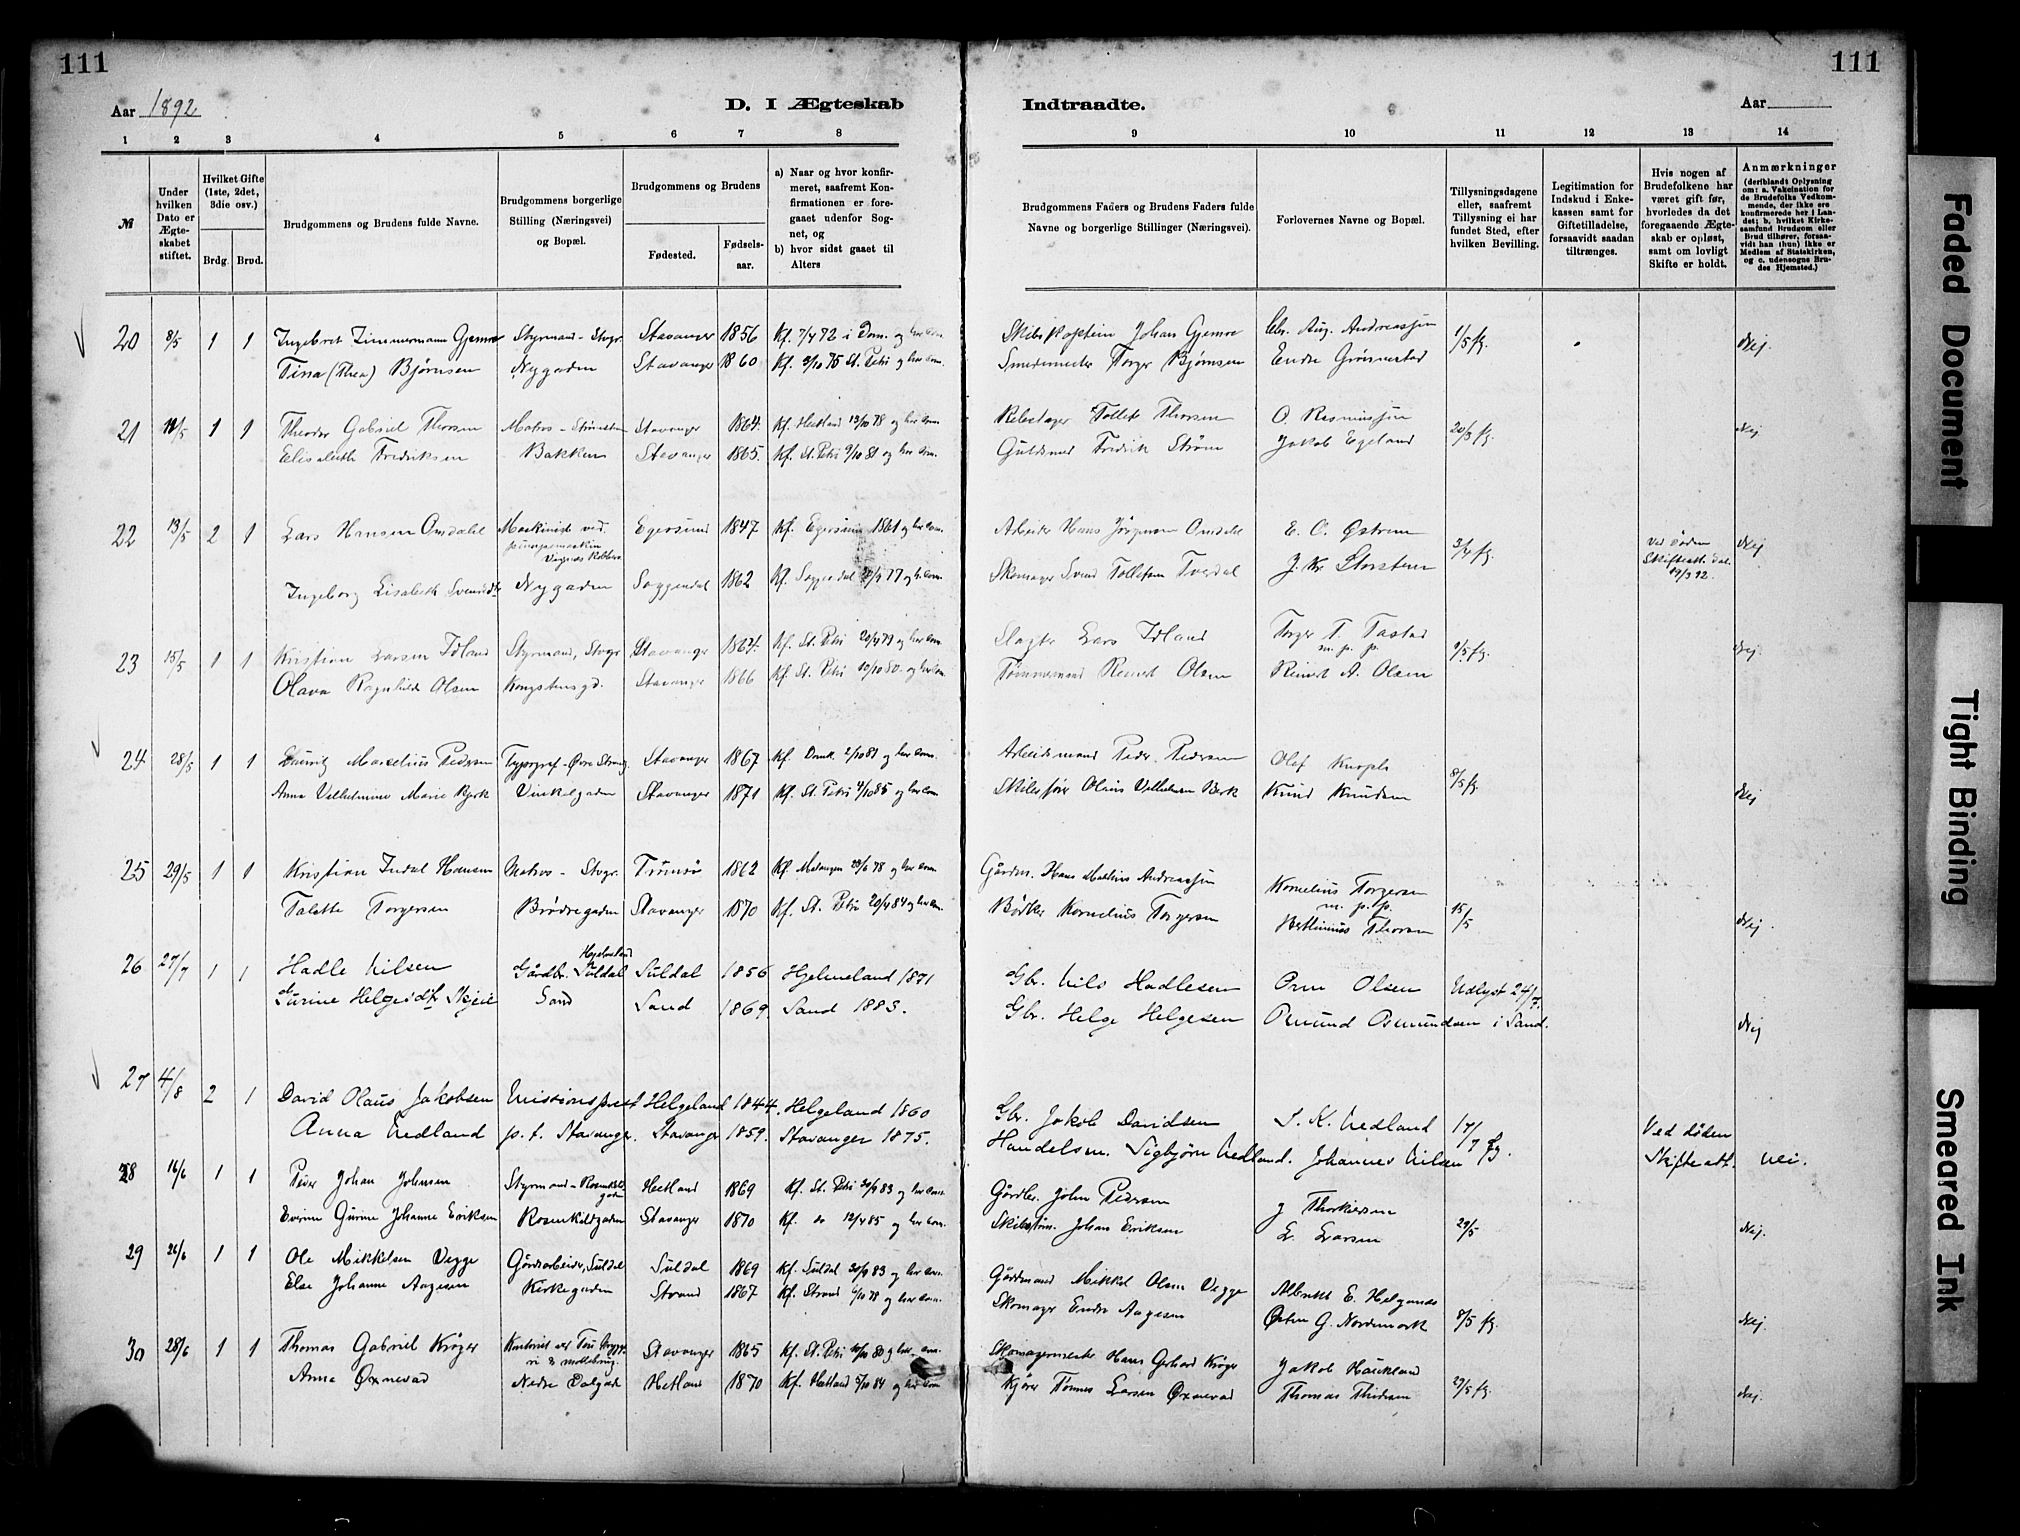 111
111
Aar 1892
D. I Ægteskab
Indtraadte.
Aar
1 2 3 4 5 6 7 8
9 10 11 12 13 14
№
Under hvilken Dato er Ægteskabet stiftet.
Hvilket Gifte (1ste, 2det, 3die osv.)
Brdg. Brud.
Brudgommens og Brudens fulde Navne.
Brudgommens borgerlige Stilling (Næringsvei) og Bopæl.
Brudgommens og Brudens
Fødested.
Fødselsaar.
a) Naar og hvor konfirmeret, saafremt Konfirmationen er foregaaet udenfor Sognet, og
b) hvor sidst gaaet til Alters
Brudgommens Faders og Brudens Faders fulde Navne og borgerlige Stillinger (Næringsvei).
Forlovernes Navne og Bopæl.
Tillysningsdagene eller, saafremt Tillysning ei har fundet Sted, efter hvilken Bevilling.
Legitimation for Indskud i Enkekassen samt for Giftetilladelse, forsaavidt saadan tiltrænges.
Hvis nogen af Brudefolkene har været gift før, hvorledes da det foregaaende Ægteskab er opløst, samt om lovligt Skifte er holdt.
Anmærkninger (deriblandt Oplysning om: a. Vakcination for de Brudefolks Vedkommende, der ikke ere konfirmerede her i Landet; b. hvilket Kirkesamfund Brudgom eller Brud tilhører, forsaavidt han (hun) ikke er Medlem af Statskirken, og c. udensogns Brudes Hjemsted.)
20 8/5 1 1 Ingebret Zimmermann Gjemre Styrmand - Stvgr. Stavanger 1856 Kf. 7/4 72 i Dom. og her com. Skibskaptein Johan Gjemre Chr. Aug. Andreassen 1/5 fg. Nej.
Tina (Thea) Bjørnsen Nygaden Stavanger 1860 Kf. 3/10 75 St. Petri og her com. Smedemester Torger Bjørnsen Endre Grønnestad
21 1 1 Theodor Gabriel Thorsen Matros - Stavanger 1864. Kf. Hetland 13/10 78 og her com Rebslager Tollef Thorsen O. Rasmussen 20/3 fg. Nej
Elisabeth Fredriksen Bakken Stavanger 1865. Kf. St. Petri 9/10 81 og her com. Guldsmed Fredrik Strøm Jakob Egeland
22 13/5 2 1 Lars Hansen Omdahl Maskinist ved Egersund 1847 Kf. Egersund 1861 og her com. Arbeider Hans Jørgensen Omdahl E. O. Østrem 3/4 fg. Ved Døden Nej
pumpemaskin Vignes Kobberv. Skifteatt. dat. 19/3 92.
Ingeborg Lisabeth Svensdtr Nygaden Soggendal 1862 Kf. Soggendal 77 og h. com. Skomager Svend Tollefsen Tverdal J. Kr. Storstein
23 15/5 1 1 Kristian Larsen Idland Styrmand, Stvgr Stavanger 1864. Kf. St. Petri 20/4 79 og her com. Slagter Lars Idland Torger T. Tastad fg. Nej.
m. p. p.
Olava Ragnhilde Olsen Kongstensgd. Stavanger 1866 Kf. St. Petri 10/10 80. og her com Tømmermand Reinert Olsen Reinert A. Olsen
24 28/5 1 1 Lauritz Marselius Pedersen Typograf - Øvre Strandg. Stavanger 1867 Kf. Domk. 2/10 81 og her com. Arbeidsmand Peder Pedersen Olaf 8/5 fg.
Anna Vilhelmine Marie Berk Vinkelgaden Stavanger 1871 Kf. St. Petri 4/10 85 og her com Skibsfører Olaus Vilhelmsen Berk Knud Knudsen Nej
25 29/5 1 1 Kristian Indal Hansen Matros - Stvgr. Tromsø 1862 Kf. Malangen 23/6 78 og her com Gårdm. Hans Mathias Andreassen Kornelius Torgersen 15/5 Nej.
m. p. p.
Talette Torgersen Brødregaden Stavanger 1870 Kf. St. Petri 20/4 84 og her com. Bødker Kornelius Torgersen Berthinius Thorsen
26 27/7 1 1 Hadle Nilsen Gårdbr. Suldal Suldal 1856 Hjelmeland 1871 Gbr. Nils Hadlesen Orm Olsen Udlyst 24/7.
Gurine Helgesdtr Skjeie Sand Sand 1869. Sand 1883. Gbr. Helge Helgesen Omund Osmundsen i Sand. Nej
27 4/8 2 1 David Olaus Jakobsen Missionsprest Helgeland 1844. Helgeland 1860 Gbr. Jakob Davidsen S. K. Nedland 17/7 fg. Ved døden
Anna Nedland p. t. Stavanger. Stavanger 1859. Stavanger 1875. Handelsm. Sigbjørn Nedland. Johannes Nilsen Skifteatt. Nei.
28 16/6 1 1 Peder Johan Johnsen Styrmand - Rosenkildegaden Hetland 1869 Kf. St. Petri 30/9 83 og her com Gårdbr. John Pedersen J Thorkildsen 29/5 Nej.
Evrine Gurine Johanne Eriksen Rosenkildgaden Stavanger 1870 Kf. do 12/4 85 og her com. Skibstøm. Johan Eriksen L. Larsen
29 26/6 1 1 Ole Mikkelsen Vegge Gårdsarbeider, Suldal Suldal 1869 Kf. Suldal 30/9 83 og her com. Gårdmand Mikkel Olsen Vegge Albrekt E. Helganes 8/5 fg. Nej.
Else Johanne Aagesen Kirkegaden Strand 1867 Kf. Strand 6/10 78 og her com. Skomager Endre Aagesen Østen G. Nordmark
30 28/6 1 1 Thomas Gabriel Krøger Kontorist ved Tou Bryggeri & møllebrug. Stavanger 1865 Kf. St. Petri 10/10 80 og her com. Skomagermester Hans Gerhard Krøger Jakob Haukland 29/5 fg. Nej.
Anna Øxnevad Nedre Dalgade Hetland 1870 Kf. Hetland 5/10 84 og her com Kjører Tønnes Larsen Øxnevad Thomas Thidesen
Faded Document
Tight Binding
Smeared Ink